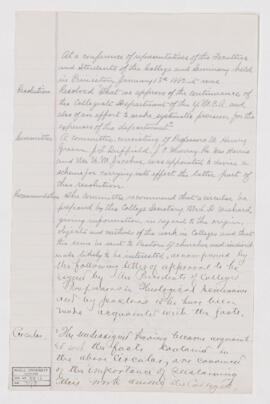 At a conference of representatives of the Faculties
and Students of the College and Seminary held
in Princeton, January 13th 1882 it was
Resolution
Resolved That we approve of the continuance of
the Collegiate Department of the Y.M.C.A. and
also of an effort to make systematic provision for the
expenses of this department.
Committee
A Committee consisting of Professors W. Henry
Green, J. T. Duffield, J. O. Murray,
and Rev. M. W. Jacobus, was appointed to devise a
scheme for carrying into effect the latter part of
this resolution.
Recommendation
The Committee recommend that a circular be
prepared by the College Secretary, Mr. L. D. Wishard,
giving information in regard to the origin,
objects and methods of the work in Colleges and that
the same be sent to Pastors of churches and individ-
uals likely to be interested, accompanied by
the following letter of approval to be
signed by the Presidents of Colleges
Professors in Theological Seminaries
and by pastors who have been
made acquainted with the facts.
Circular.
"The undersigned having become acquaint-
ed with the facts contained in
the above circular, are convinced
of the importance of sustaining
this work among the College